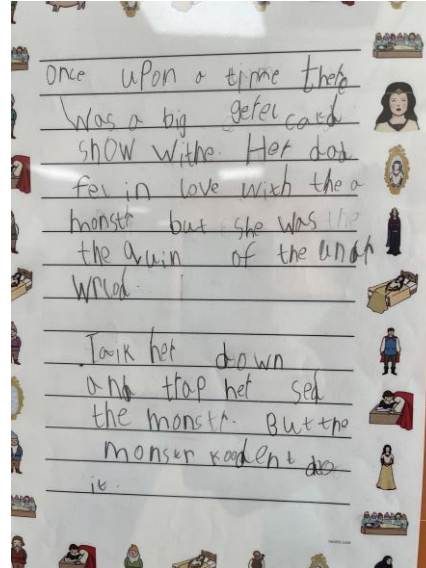 Once upon a time there
Was a big gerel cared
show withe. Her dad
fel in love with the a
monstr but she was the
the quin of the undr
wrlod.
Taik her down
and trap her sed
the monstr. But the
monstr koodent do
it.